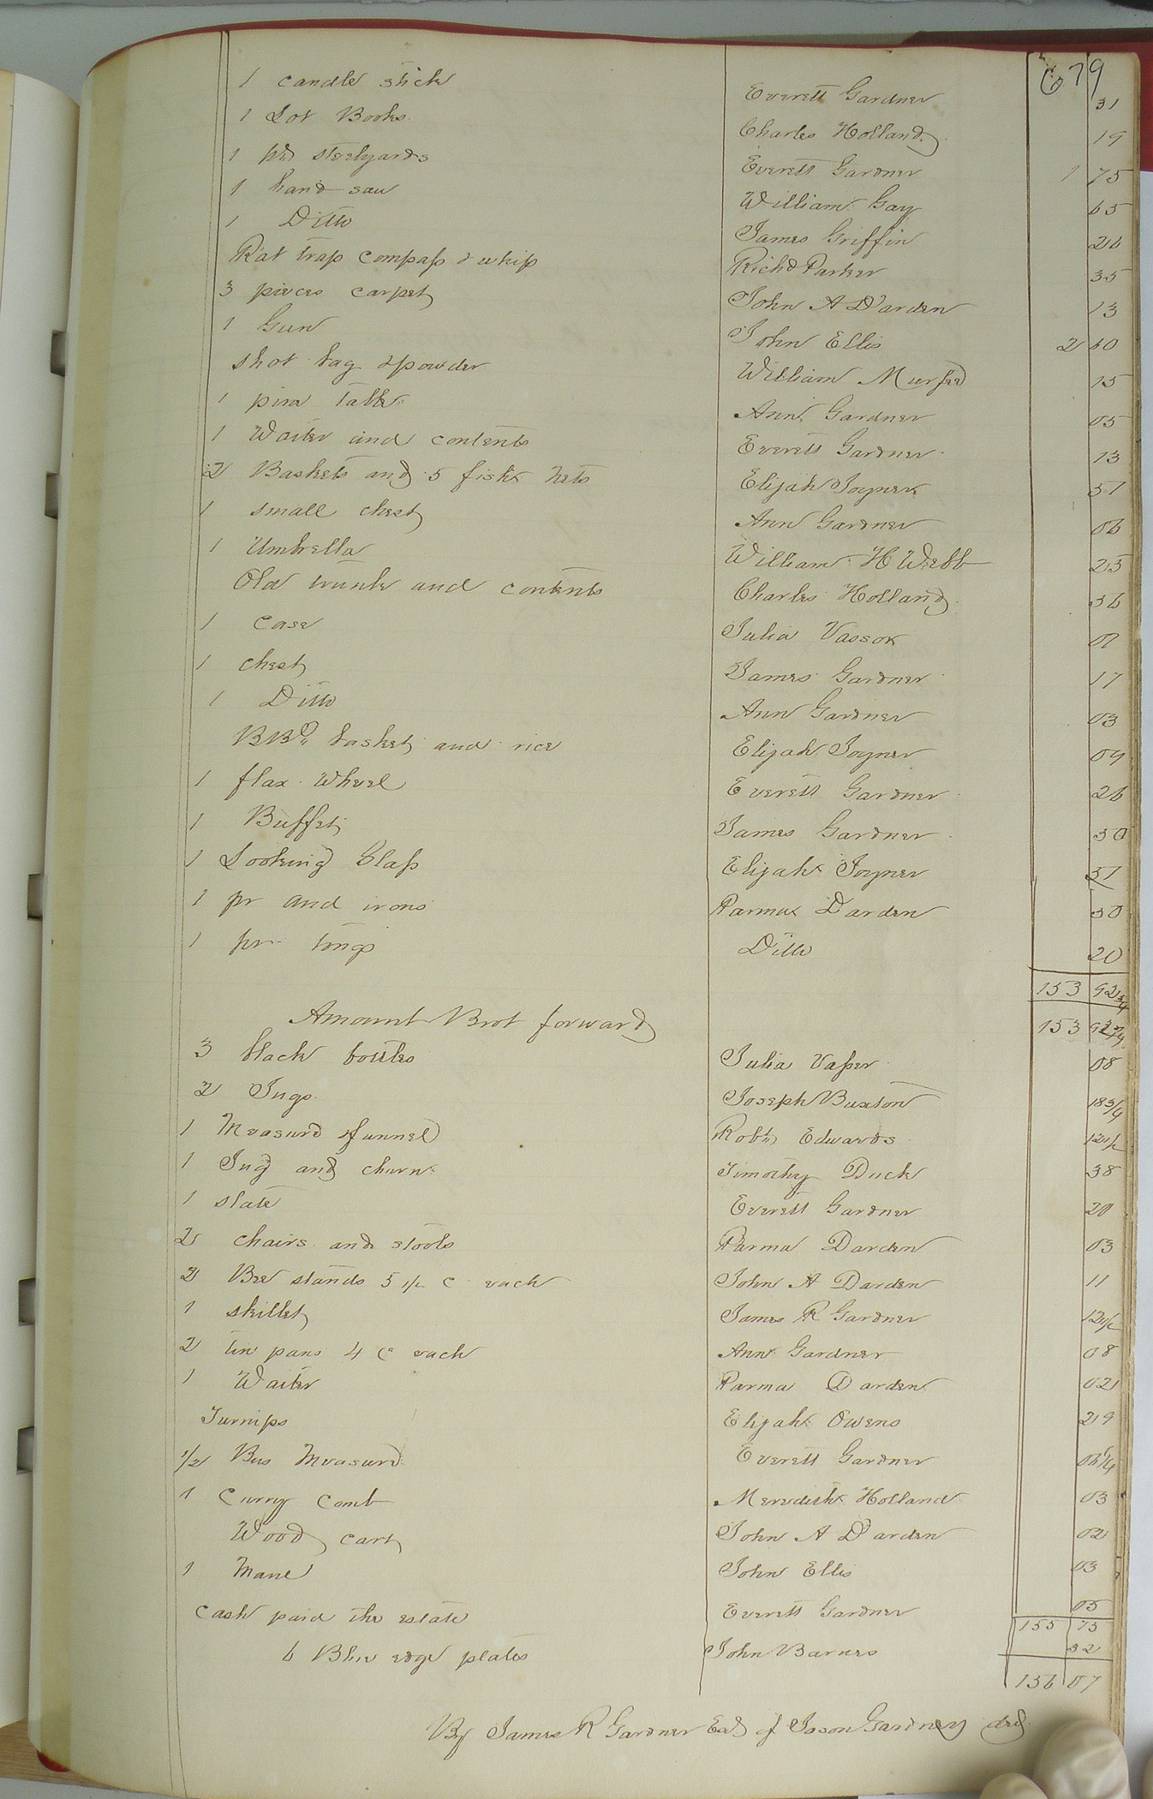 679
1 candle stick Everett Gardner 31
1 Lot Books Charles Holland 19
1 pr steelyards Everett Gardner 1 75
1 hand saw William Gay 65
1 Ditto James Griffin 26
Rat trap compass & whip Richd Parker 35
3 pieces carpet John A Darden 13
1 Gun John Ellis 2 60
shot bag & powder William Murfee 15
1 pine table Ann Gardner 05
1 Waiter and contents Everett Gardner 13
2 Baskets and 5 fish nets Elijah Joyner 51
1 small chest Ann Gardner 06
1 Umbrella William H Webb 25
Old trunk and contents Charles Holland 36
1 case Julia Vassor 07
1 chest James Gardner 17
1 Ditto Ann Gardner 03
BBd basket and rice Elijah Joyner 09
1 flax wheel Everett Gardner 26
1 Buffet James Gardner 50
1 Looking Glass Elijah Joyner 51
1 pr and irons Parma Darden 50
1 pr tongs Ditto 20
153 92 3/4
Amount Brot forward 153 92 3/4
3 black bottles Julia Vasser 08
2 Jugs Joseph Buxton 18 3/4
1 Measure & funnel Robt Edwards 12 1/2
1 Jug and churn Timothy Duck 38
1 slate Everett Gardner 20
2 chairs and stools Parma Darden 03
2 Bee stands 5 1/2 c each John A Darden 11
1 skillet James R Gardner 12 1/2
2 tin pans 4 c each Ann Gardner 08
1 Waiter Parma Darden 02
Turnips Elijah Owens 29
1/2 Bus Measure Everett Gardner 06 1/4
1 curry comb Meredith Holland 03
Wood cart John A Darden 02
1 Mane John Ellis 03
Cash paid the estate Everett Gardner 05
155 75
6 Blue edge plates John Barnes 32
156 07
By James R Gardner Exd of Jason Gardner decd